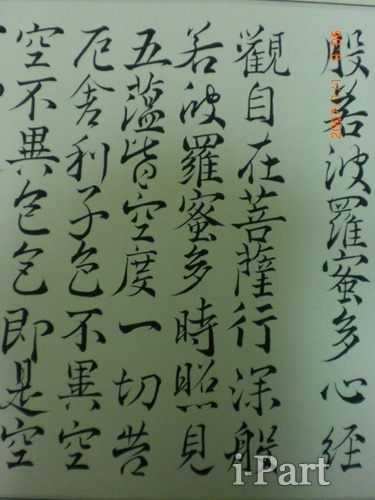 般若波羅蜜多心經
觀自在菩薩行深般
若波羅蜜多時照見
五蘊皆空度一切苦
厄舍利子色不異空
空不異色色即是空
i-Part